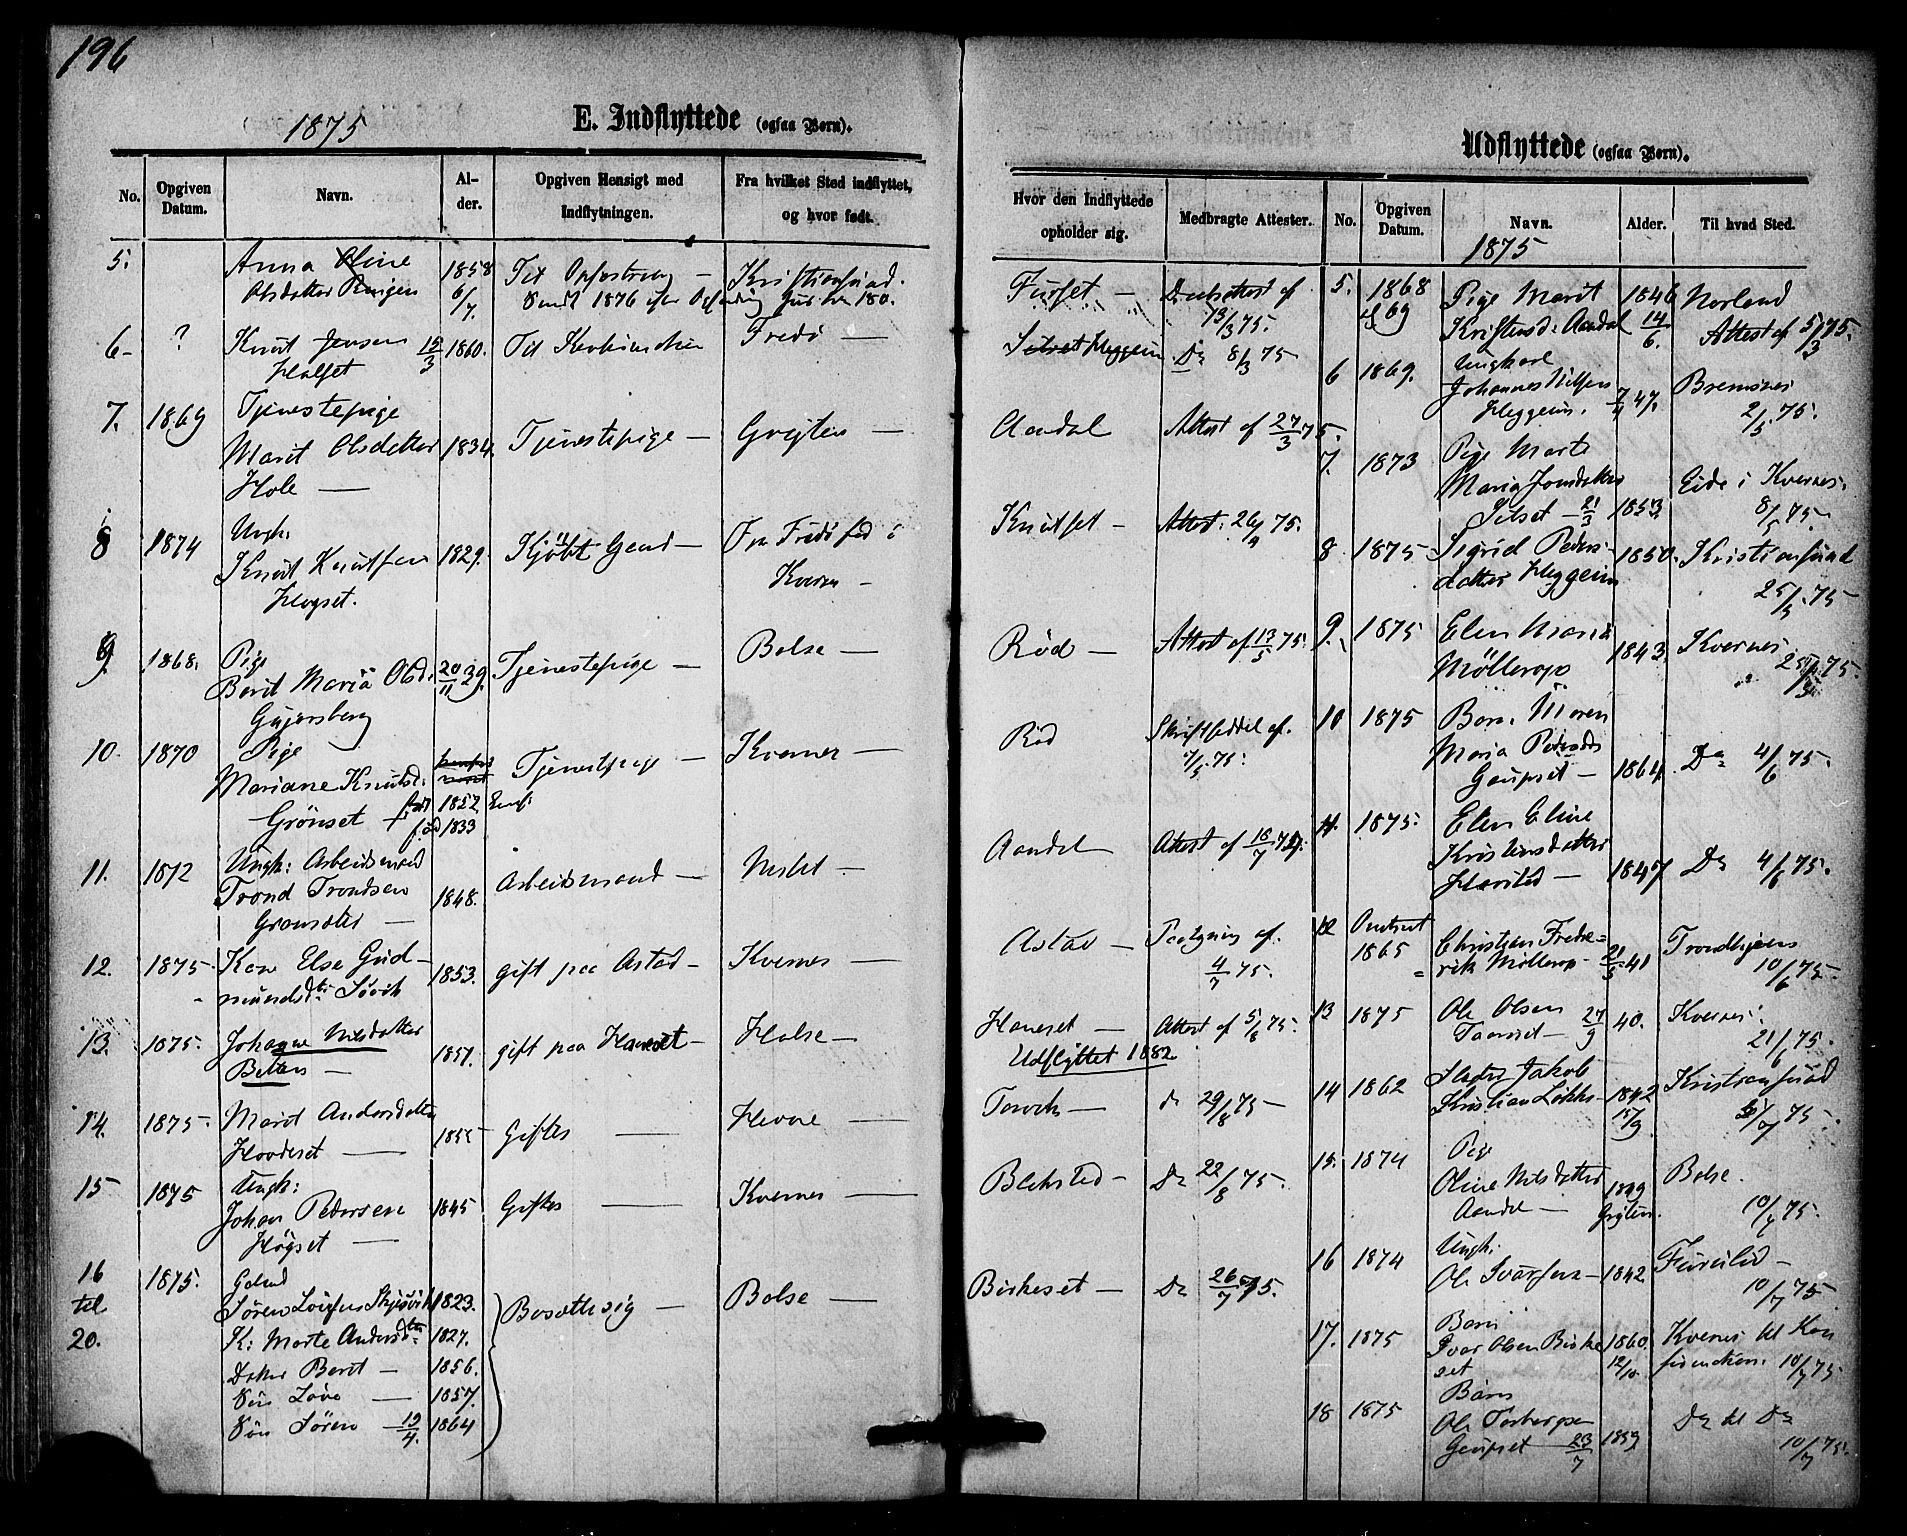 196
1875
E. Indflyttede (ogsaa Børn).
No.
Opgiven Datum.
Navn.
Al-
der.
Opgiven Hensigt med
Indflytningen.
Fra hvilket Sted indflyttet,
og hvor født.
5.
Anna Oline
Olsdatter Ringen
1858
6/7.
Til
Kristiansund.
6-
?
Knut Jensen
Halset
15/3
1860.
Til
Fredø —
7.
1869
Tjenestepige
Marit Olsdatter
Hole —
1834.
Tjenestepige —
Grejten —
8
1874
Ungk.
Knut Knutsen
Hogset.
1829.
Kjøbt Gaard —
Fra Fredø fød i
Kvernes —
9.
1868.
Pige
Berit Maria Olsd.
Gujersberg
20/11 39.
Tjenestepige —
Bolsø —
10.
1870
Pige
Mariane Knutsd.
Grönset —
1852
fød 1833
Tjenestepige —
Kvernes —
11.
1872
Ungk: Arbeidsmand
Trond Trondsen
Gransæter —
1848.
Arbeidsmand —
Nesset —
12.
1875
Kone Else Gud-
mundsdtr Søvik
1853.
gift paa Astad —
Kvernes —
13.
1875.
Johanne Nilsdatter
1851.
gift paa Haneset —
Halse —
14.
1875.
Marit Andersdatter
Hovdeset —
1855
Giftes —
Hevne —
15
1875
Ungk:
Johan Pedersen
Høgset —
1845
Giftes —
Kvernes —
16
til
20.
1875.
Gdmd
Søren Løvsen Skjesvik
1823.
Bosætte sig —
Bolsø —
K: Marte Andersdtr
1827.
Datter Berit —
1856.
Søn Løve —
1857.
Søn Søren — 19/4.
1864
Udflyttede (ogsaa Børn).
Hvor den Indflyttede
opholder sig.
Medbragte Attester.
No.
Opgiven
Datum.
Navn.
Alder.
Til hvad Sted.
1875
Furset —
13/3 75.
Heggeim
Do 8/3 75
Aandal
Attest af 27/3 75.
Knutset —
Attest. 26/4 75.
Rød —
Attest af 13/5 75.
Rød
Skriftseddel af
Aandal
Attest af 18/7
Astad —
Paategning af
4/7 75.
Haneset —
Attest af 5/8 75.
Udflyttet 1882
Torvik —
do 29/8 75 —
Bleksted —
Do 22/8 75.
Birkeset —
Do 26/7 75.
5.
1868
69
Pige Marit
Kristensd: Aandal
1846
14/6.
Norland
Attest af 5/3 75.
6
1869.
Ungkarl
Johannes Nilsen
Heggeim.
47.
Bremsnes
2/5 75.
7.
1873
Pige Marte
Maria Jonsdatter
Silset — 21/3
1853.
Eide i Kvernes.
8/5 75.
8
1875
Sigrid Peders-
datter Heggeim
1850.
Kristiansund
25/5 75
9.
1875
Elen Maria
Møllerop
1843.
Kvernes.
10
1875
Barn Maren
Maria Pedersdtr
Gaupset —
1864.
Do 4/6 75.
11.
1875.
Elen Eline
Kristensdatter
Harstad —
1847
Do 4/6 75.
12
Omtrent
1865
Christian Frede=
rik Møllerop — 21/5 41
Trondhjem
10/6 75.
13
1875
Ole Olsen
27/9
40.
Kvernes.
21/6 75.
14
1862
Jakob
Kristian Løkke —
1842
15/9
Kristiansund
15.
1874
Pige
Oline Nilsdatter
Aandal —
1849
Grejten.
Bolsø.
10/7 75.
16
1874
Ungk:
Ole Ivarsen —
1842
Furulid —
10/7 75.
17.
1875
Barn
Ivar Olsen Birke
set
1860.
12/10
Kvernes til Kon
firmation. 10/7 75
18
1875
Barn
Ole Torbergsen
Gaupset 23/7
1859
Do til Do
10/7 75.